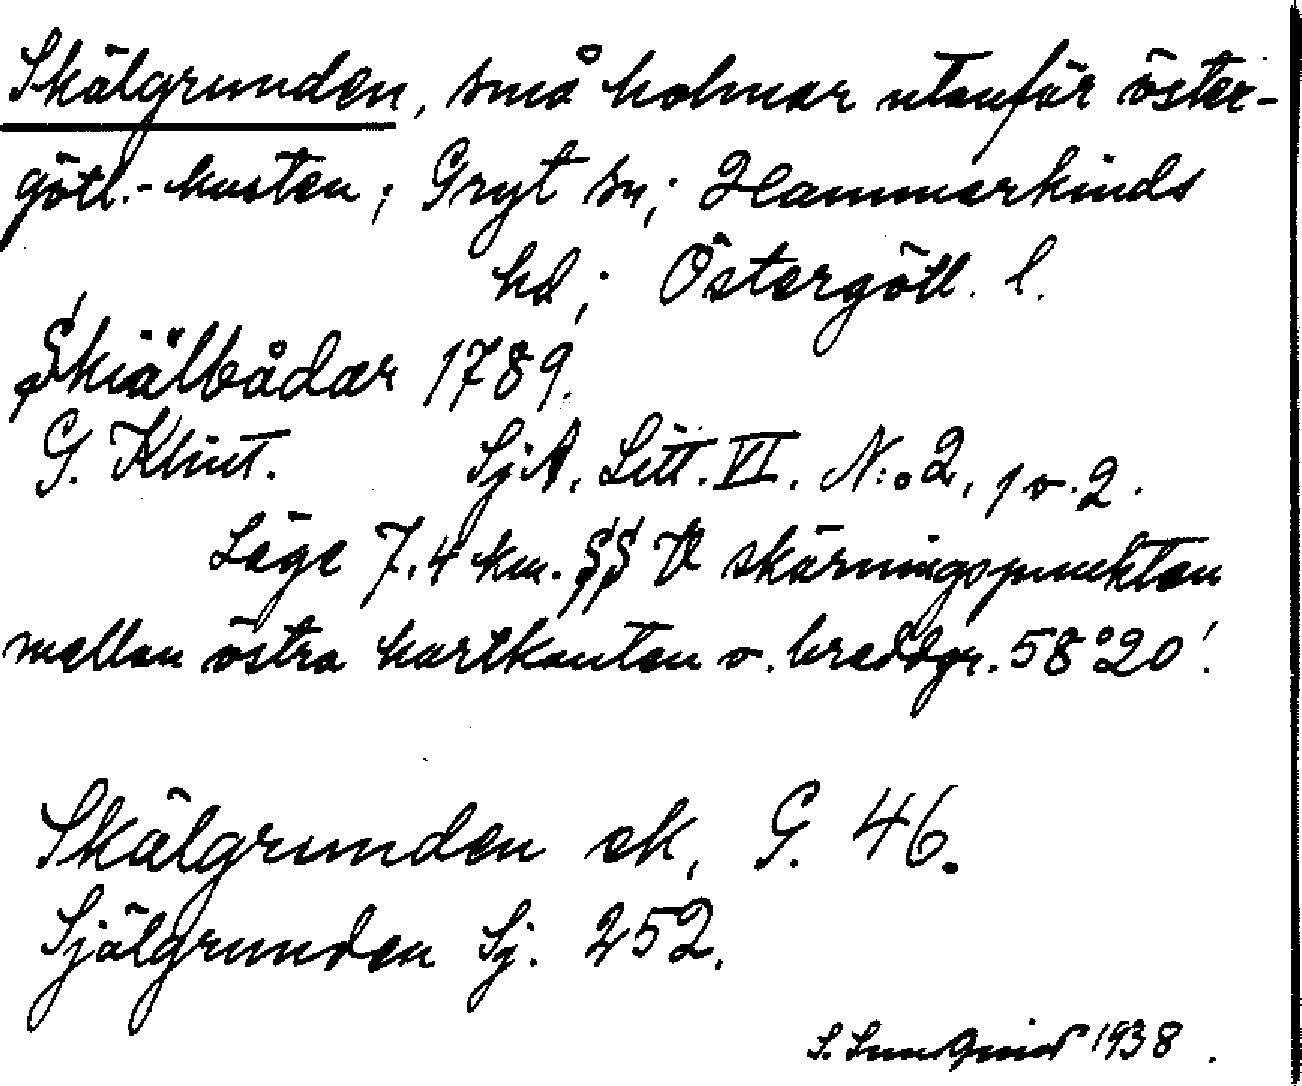 Skälgrunden, små holmar utanför öster-
götl.-kusten; Gryt sn; Hammarkinds
hd; Östergötl. l.
Skiälbådar 1789.
G. Klint. SjA. Litt. VI. N:o 2, 1 o. 2.
Läge 7.4 km. SS V skärningspunkten
mellan östra kartkanten o. breddgr. 58°20'.
Skälgrunden ek, G. 46.
Själgrunden Sj. 252.
S. Sundqvist 1938.